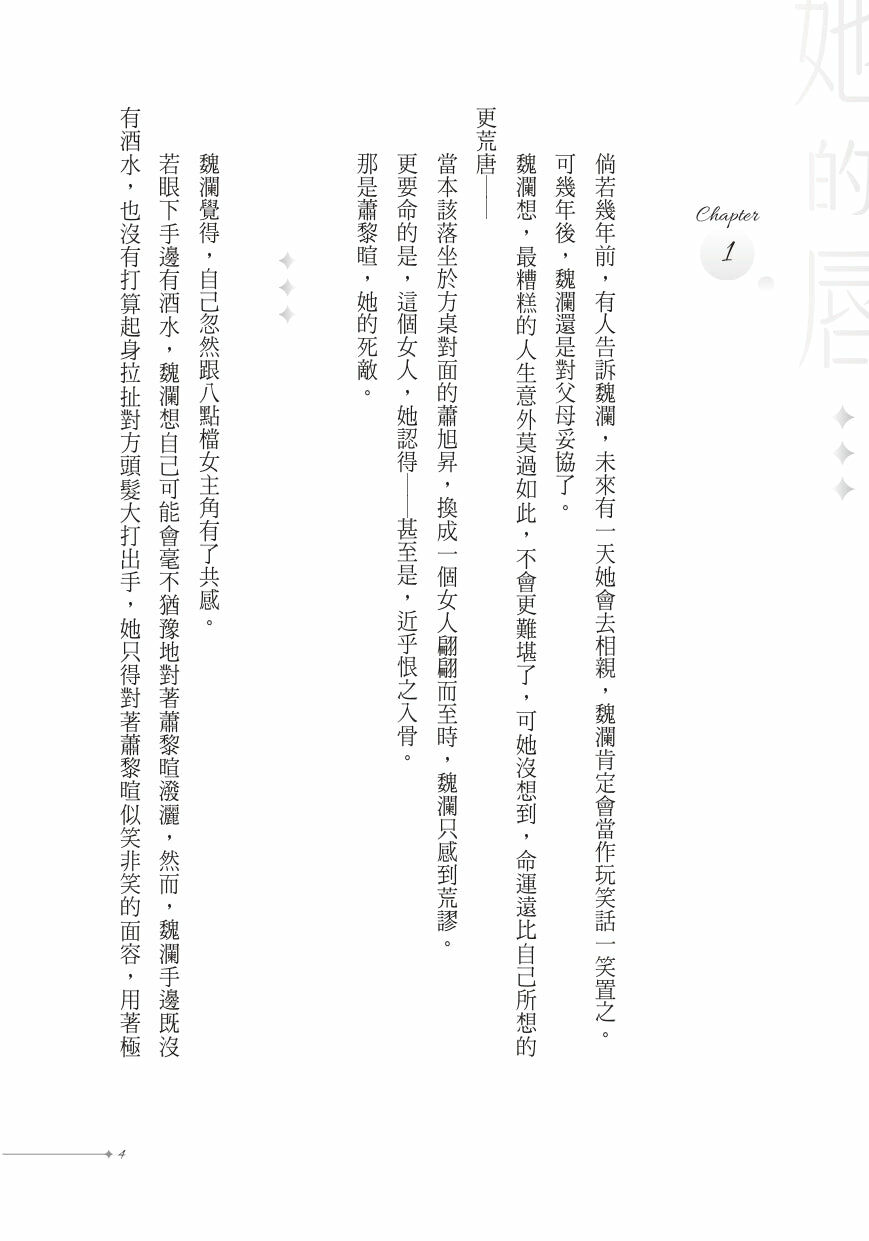 她的唇
Chapter
1
倘若幾年前，有人告訴魏瀾，未來有一天她會去相親，魏瀾肯定會當作玩笑話一笑置之。
可幾年後，魏瀾還是對父母妥協了。
魏瀾想，最糟糕的人生意外莫過如此，不會更難堪了，可她沒想到，命運遠比自己所想的
更荒唐——
當本該落坐於方桌對面的蕭旭昇，換成一個女人翩翩而至時，魏瀾只感到荒謬。
更要命的是，這個女人，她認得——甚至是，近乎恨之入骨。
那是蕭黎暄，她的死敵。
魏瀾覺得，自己忽然跟八點檔女主角有了共感。
若眼下手邊有酒水，魏瀾想自己可能會毫不猶豫地對著蕭黎暄潑灑，然而，魏瀾手邊既沒
有酒水，也沒有打算起身拉扯對方頭髮大打出手，她只得對著蕭黎暄似笑非笑的面容，用著極
4